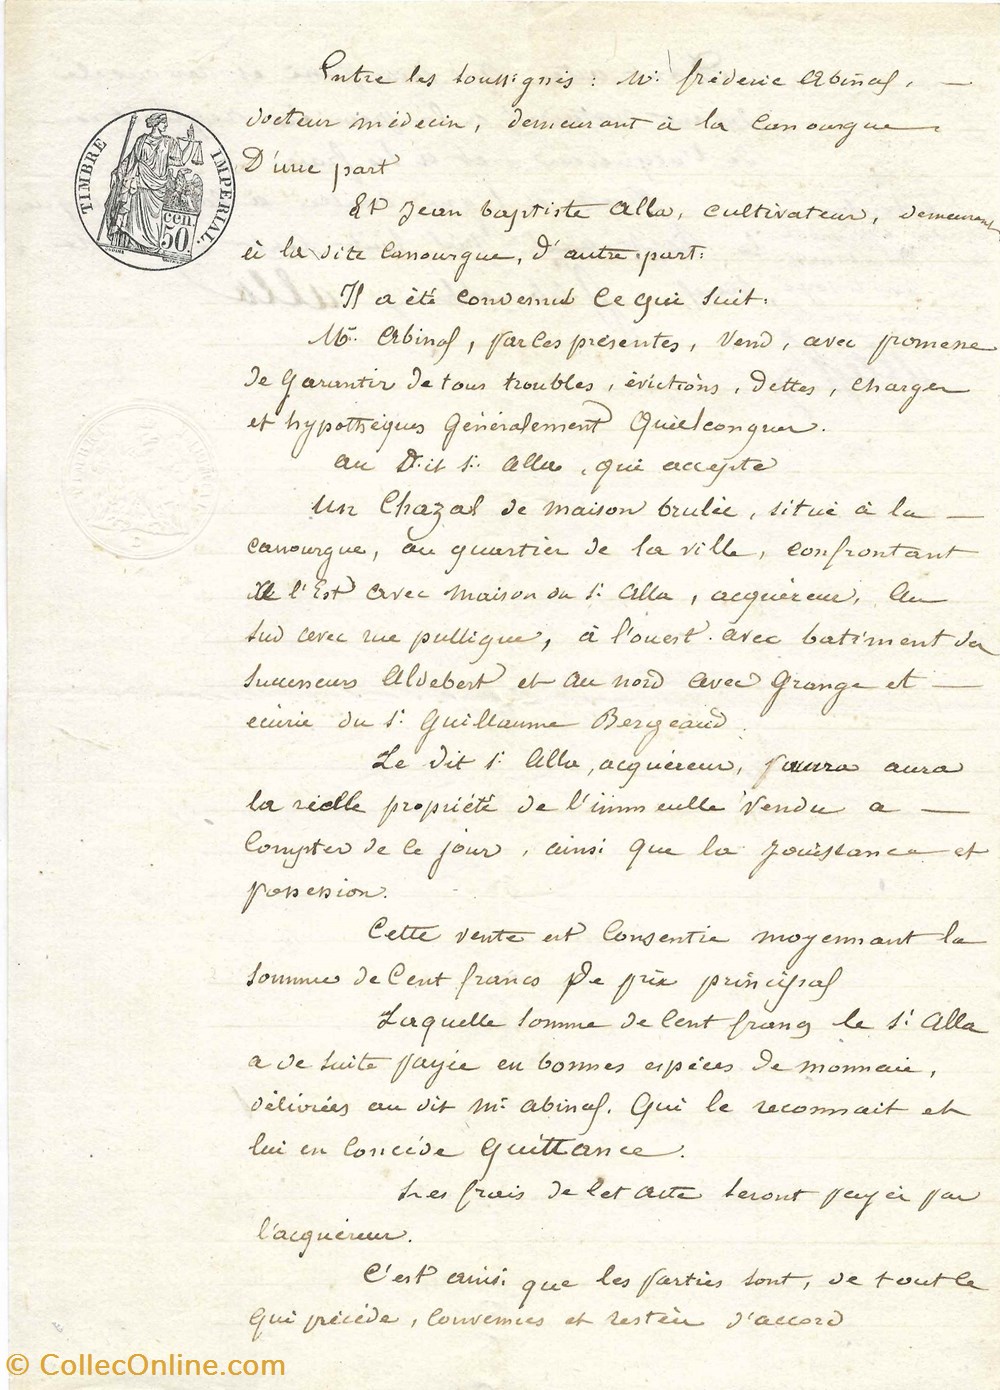 Entre les soussignés : Mr. frédéric Abinal, —
docteur médecin, demeurant à la Canourgue.
TIMBRE IMPERIAL.
50 cen
D'une part
Et Jean baptiste Alla, cultivateur, demeurant
à la dite Canourgue, d'autre part.
Il a été convenu ce qui suit.
Mr. Abinal, par ces présentes, vend, avec promesse
de garantir de tous troubles, évictions, dettes, charges
et hypothèques généralement quielconques.
au dit sr. Alla, qui accepte
un Chazal de maison brulée, situé à la —
canourgue, au quartier de la ville, confrontant
de l'Est avec maison du sr. Alla, acquéreur, au
sud avec rue pullique, à l'ouest avec batiment des
successeurs Aldebert et au nord avec grange et —
écurie du sr. Guillaume Bergeaud.
Le dit sr. Alla, acquéreur, aura
la réelle propriété de l'immeulle vendu a —
compter de ce jour, ainsi que la jouissance et
possession.
Cette vente est consentie moyennant la
somme de cent francs de prix principal
Laquelle somme de cent francs le sr. Alla
a de suite payée en bonnes espèces de monnaie,
délivrées au dit Mr. abinal. Qui le reconnait et
lui en concède quittance.
Les frais de cet acte seront payés par
l'acquéreur.
C'est ainsi que les parties sont, de tout ce
qui précède, convenues et restées d'accord
© CollecOnline.com